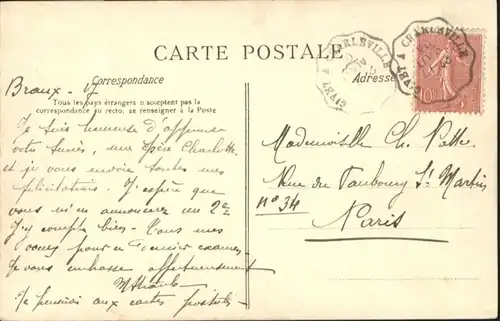 CARTE POSTALE
Correspondance
Adresse
Tous les pays étrangers n'acceptent pas la
correspondance au recto, se renseigner à la Poste
GIVET A CHARLEVILLE
GIVET A CHARLEVILLE
10
Braux - 
Je suis heureuse d'apprendre
votre succès, ma chère Charlotte
et je vous envoie toutes mes
félicitations. J'espère que
vous m'en annoncerez un 2e
J'y compte bien. Tous mes
voeux pour ce dernier examen
Je vous embrasse affectueusement
Je pensais aux cartes postales
Mademoiselle Ch.
Rue du Faubourg St Martin
n° 34
Paris